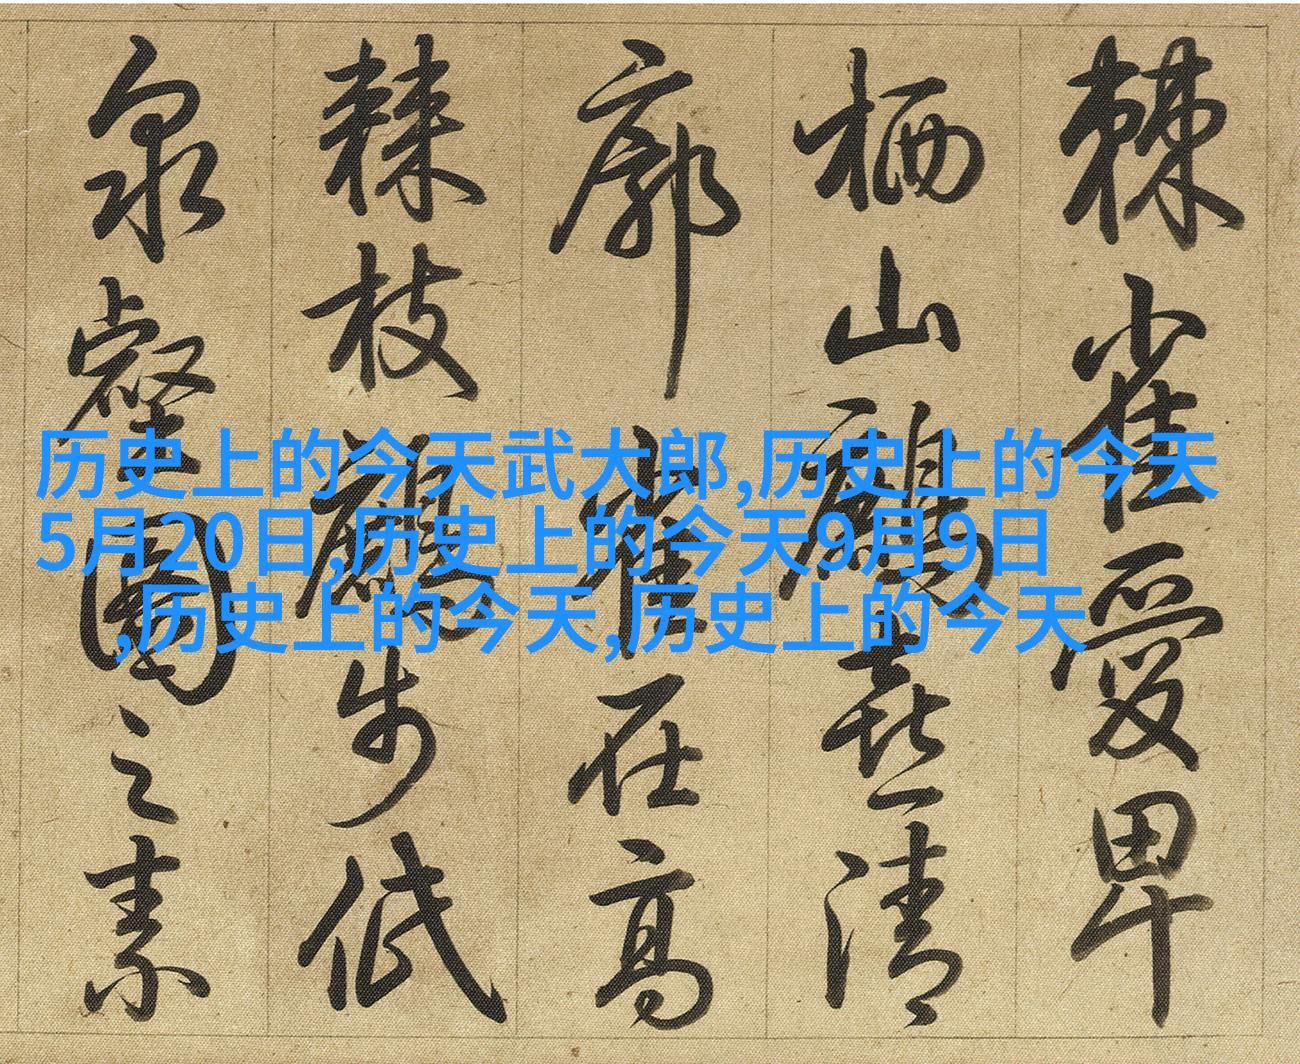 棘雀愛卑
栖山喜清
廓雀在高
棘枝步低
泉壑之素
历史上的今天武大郎,历史上的今天
5月20日,历史上的今天9月9日
,历史上的今天,历史上的今天